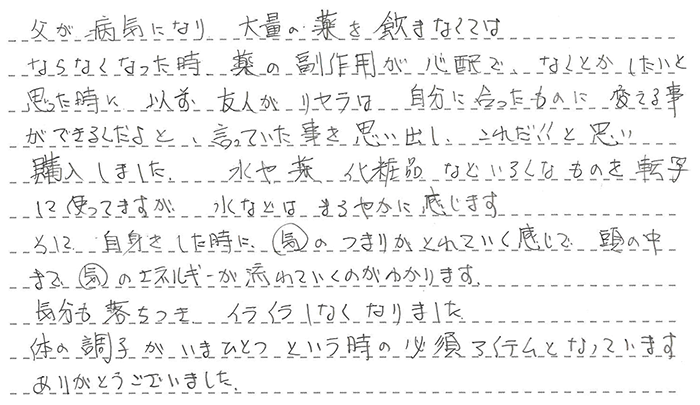 父が病気になり 大量の薬を飲まなくては
ならなくなった時 薬の副作用が心配で、なんとかしたいと
思った時に 以前 友人が リセラは 自分に合ったものに 変える事
ができるんだよと、言っていた事を思い出し、これだ!!と思い
購入しました。 水や薬 化粧品 などいろんなものを転写
に使ってますが 水などは まろやかに感じます
そして 自身をした時に、気のつまりがとれていく感じで 頭の中
まで 気のエネルギーが流れていくのがわかります。
気分も落ちつき イライラしなくなりました
体の調子がいまひとつという時の必須アイテムとなっています
ありがとうございました。